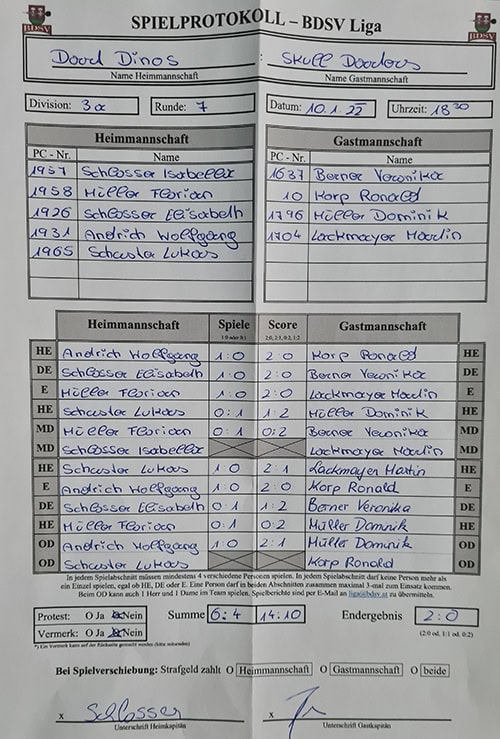 SPIELPROTOKOLL – BDSV Liga
Dood Dinos : Skull Doodors
Name Heimmannschaft Name Gastmannschaft
Division: 3a Runde: 7 Datum: 10.1.22 Uhrzeit: 18 30
Heimmannschaft Gastmannschaft
PC - Nr. Name PC - Nr. Name
1957 Schlosser Isabella 1637 Berner Veronika
1958 Müller Florian 10 Korp Ronald
1926 Schlosser Elisabeth 1796 Müller Dominik
1931 Andrich Wolfgang 1704 Lackmayer Martin
1965 Schuster Lukas
Heimmannschaft Spiele Score Gastmannschaft
1:0 oder 0:1 2:0, 2:1, 0:2, 1:2
HE Andrich Wolfgang 1:0 2:0 Korp Ronald HE
DE Schlosser Elisabeth 1:0 2:0 Berner Veronika DE
E Müller Florian 1:0 2:0 Lackmayer Martin E
HE Schuster Lukas 0:1 1:2 Müller Dominik HE
MD Müller Florian 0:1 0:2 Berner Veronika MD
MD Schlosser Isabella Lackmayer Martin MD
HE Schuster Lukas 1:0 2:1 Lackmayer Martin HE
E Andrich Wolfgang 1:0 2:0 Korp Ronald E
DE Schlosser Elisabeth 0:1 1:2 Berner Veronika DE
HE Müller Florian 0:1 0:2 Müller Dominik HE
OD Andrich Wolfgang 1:0 2:1 Müller Dominik OD
OD Schuster Lukas Korp Ronald OD
In jedem Spielabschnitt müssen mindestens 4 verschiedene Personen spielen. In jedem Spielabschnitt darf keine Person mehr als
ein Einzel spielen, egal ob HE, DE oder E. Eine Person darf in beiden Abschnitten zusammen maximal 3-mal zum Einsatz kommen.
Beim OD kann auch 1 Herr und 1 Dame im Team spielen. Spielberichte sind per E-Mail an liga@bdsv.at zu übermitteln.
Protest: O Ja Nein Summe 6:4 14:10 Endergebnis 2:0
Vermerk: O Ja Nein (2:0 od. 1:1 od. 0:2)
Bei Spielverschiebung: Strafgeld zahlt O Heimmannschaft O Gastmannschaft O beide
x Schlosser x
Unterschrift Heimkapitän Unterschrift Gastkapitän